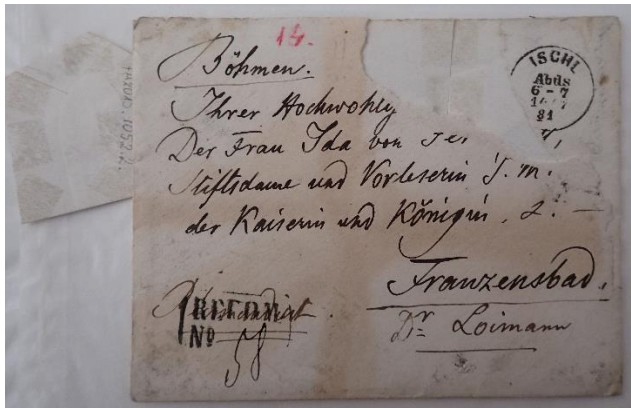 14.
Böhmen.
ISCHL
Abds
6-7
81
Ihrer Hochwohlg
Der Frau Ida von Fe
Stiftsdame und Vorleserin I. M.
der Kaiserin und Königin. 2. —
Franzensbad.
Dr Loimann
RECOM
No
58